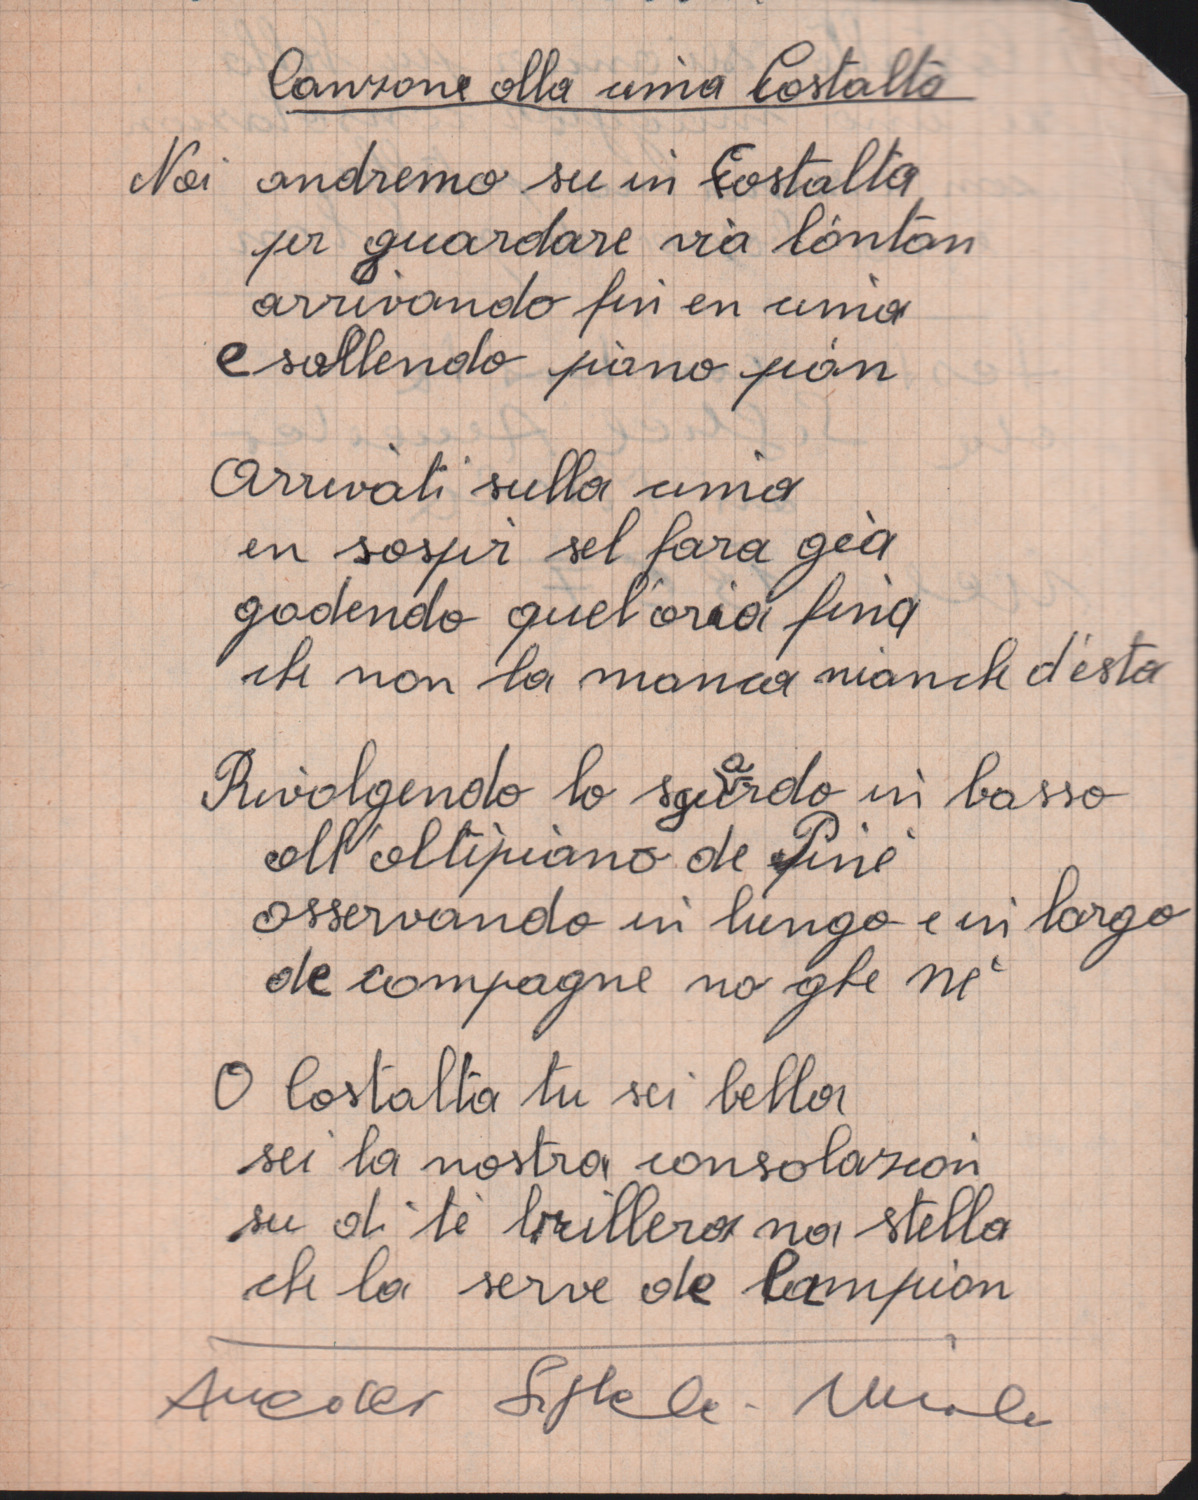 Canzone alla cima Costalta
Noi andremo su in Costalta
per guardare via lontan
arrivando fin en cima
e sallendo piano pián
Arrivati sulla cima
en sospir sel fara già
godendo quel'aria fina
che non la manca nianche d'esta
Rivolgendo lo sguardo in basso
all'altipiano de Pinè
osservando in lungo e in largo
de compagne no ghe nè
O Costalta tu sei bella
sei la nostra consolazion
su di tè brillera na stella
che la serve de lampion